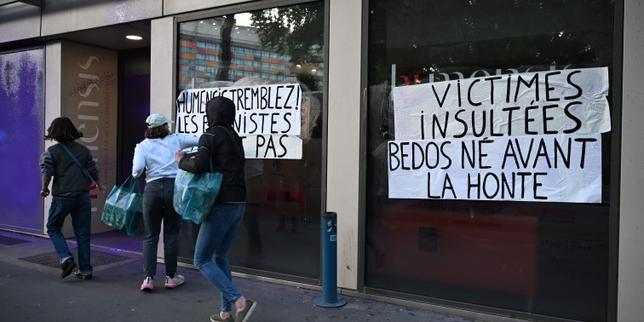 HUMENSIS TREMBLEZ!
LES
PAS
VICTIMES
INSULTÉES
BEDOS NÉ AVANT
LA HONTE